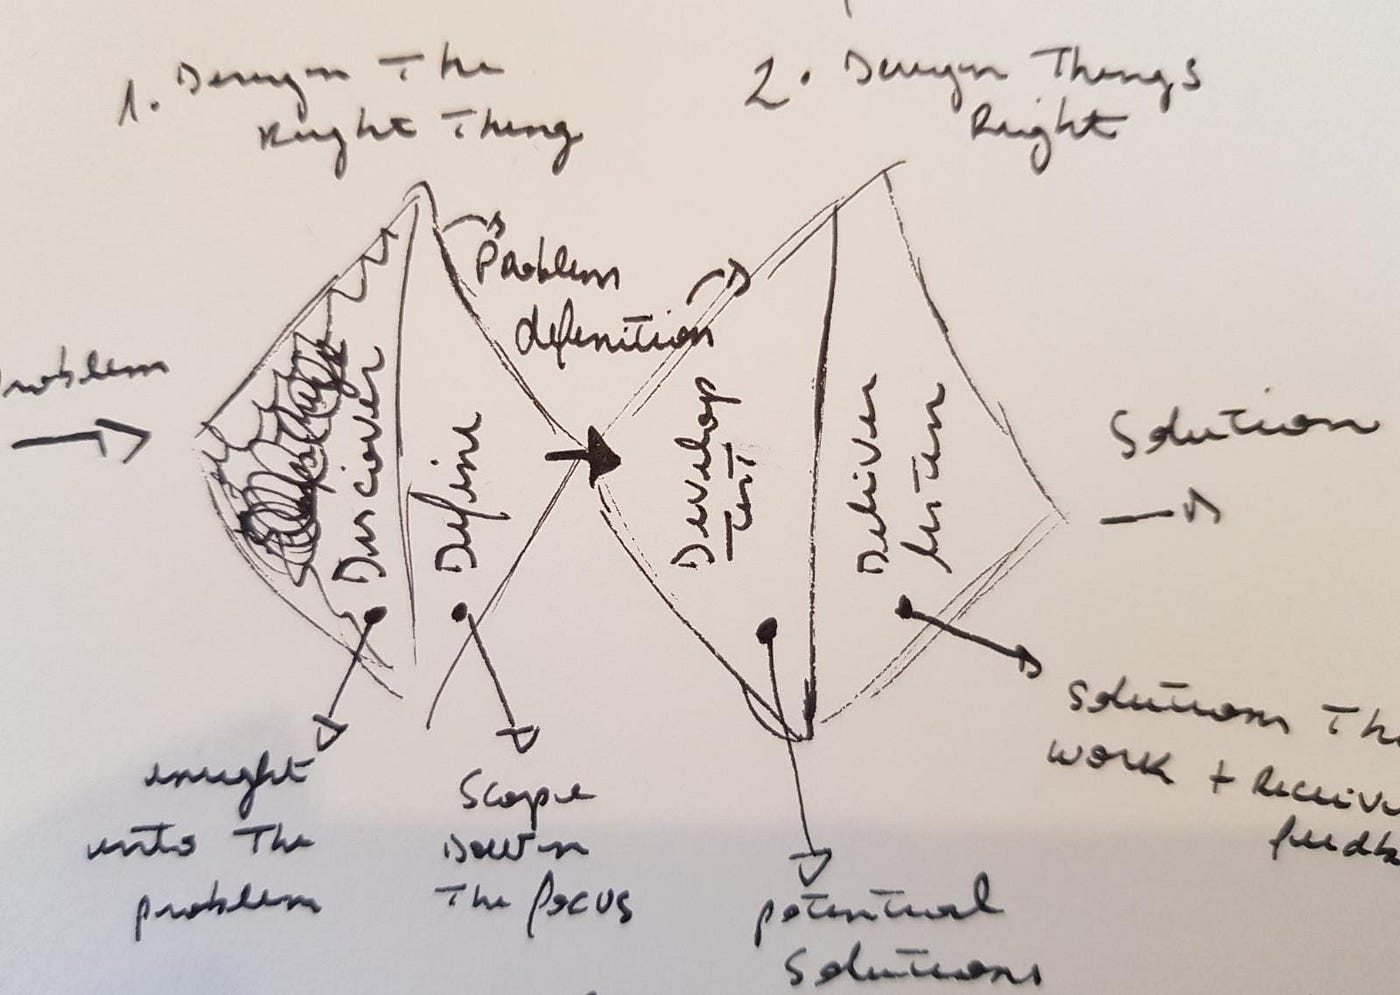 1. Design The
Right Thing
2. Design Things
Right
Problem
definition
Problem
Discover
Define
Develop
Test
Deliver
listen
Solution
insight
into The
problem
Scope
Down
The focus
potential
Solutions
Solutions Th
work + Receive
feedb